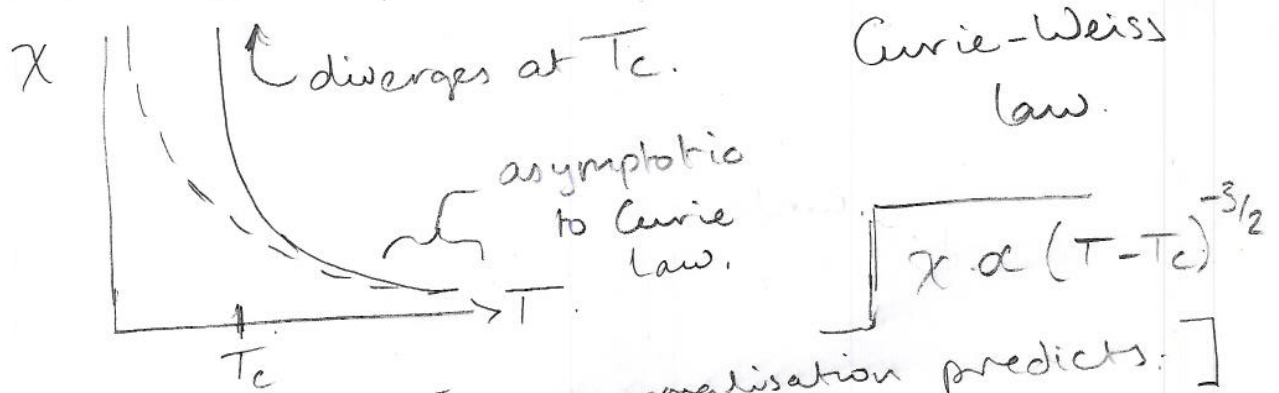 χ
diverges at Tc.
Curie-Weiss
law.
asymptotic
to Curie
law.
χ ∝ (T-Tc)^-3/2
T.
Tc
predicts.]